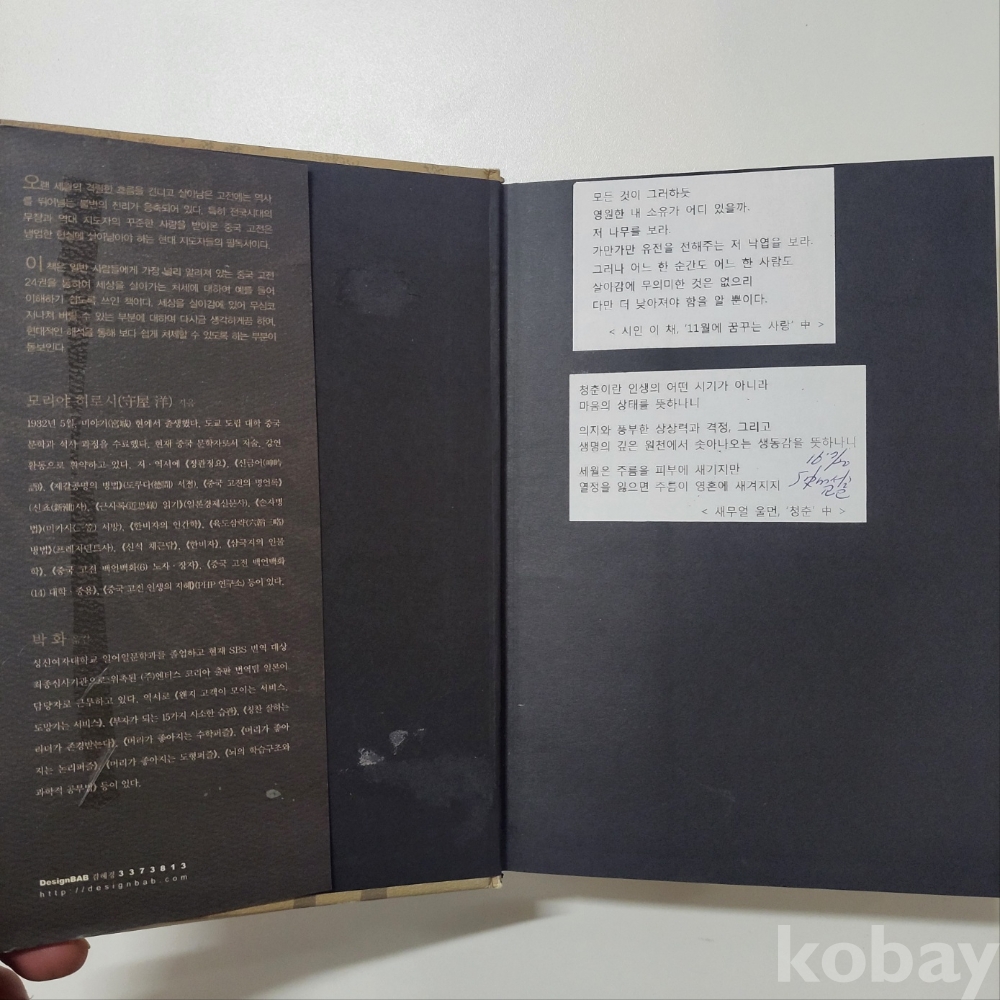 오랜 세월의 격렬한 흐름을 견디고 살아남은 고전에는 역사
를 뛰어넘는 불변의 진리가 응축되어 있다. 특히 전국시대의
무장과 역대 지도자의 꾸준한 사랑을 받아온 중국 고전은
냉엄한 현실에 살아남아야 하는 현대 지도자들의 필독서이다.
이 책은 일반 사람들에게 가장 널리 알려져 있는 중국 고전
24권을 통하여 세상을 살아가는 처세에 대하여 예를 들어
이해하기 쉽도록 쓰인 책이다. 세상을 살아감에 있어 무심코
지나쳐 버릴 수 있는 부분에 대하여 다시금 생각하게끔 하며,
현대적인 해석을 통해 보다 쉽게 처세할 수 있도록 하는 부분이
돋보인다.
모리야 히로시(守屋 洋) 지음
1932년 5월, 미야기(宮城) 현에서 출생했다. 도쿄 도립 대학 중국
문학과 석사 과정을 수료했다. 현재 중국 문학자로서 저술, 강연
활동으로 활약하고 있다. 저·역서에 《정관정요》, 《신음어(呻吟
語)》, 《제갈공명의 병법》(도쿠마(德間) 서점), 《중국 고전의 명언록》
(신쵸(新潮)사), 《근사록(近思錄) 읽기》(일본경제신문사), 《손자병
법》(미카사(三笠) 서방), 《한비자의 인간학》, 《육도삼략(六韜三略)
병법》(프레지던트사), 《신석 채근담》, 《한비자》, 《삼국지의 인물
학》, 《중국 고전 백언백화(6) 노자·장자》, 《중국 고전 백언백화
(14) 대학·중용》, 《중국 고전 인생의 지혜》(PHP 연구소) 등이 있다.
박 화 옮김
성신여자대학교 일어일문학과를 졸업하고 현재 SBS 번역 대상
최종심사기관으로 위촉된 (주)엔터스 코리아 출판 번역팀 일본어
담당자로 근무하고 있다. 역서로 《왠지 고객이 모이는 서비스,
도망가는 서비스》, 《부자가 되는 15가지 사소한 습관》, 《칭찬 잘하는
리더가 존경받는다》, 《머리가 좋아지는 수학퍼즐》, 《머리가 좋아
지는 논리퍼즐》, 《머리가 좋아지는 도형퍼즐》, 《뇌의 학습구조와
과학적 공부법》 등이 있다.
DesignBAB 3373813
http://designbab.com
모든 것이 그러하듯
영원한 내 소유가 어디 있을까.
저 나무를 보라.
가만가만 유전을 전해주는 저 낙엽을 보라.
그러나 어느 한 순간도 어느 한 사람도
살아감에 무의미한 것은 없으리
다만 더 낮아져야 함을 알 뿐이다.
< 시인 이 채, '11월에 꿈꾸는 사랑' 中 >
청춘이란 인생의 어떤 시기가 아니라
마음의 상태를 뜻하나니
의지와 풍부한 상상력과 격정, 그리고
생명의 깊은 원천에서 솟아나오는 생동감을 뜻하나니
세월은 주름을 피부에 새기지만
열정을 잃으면 주름이 영혼에 새겨지지
< 새무얼 울먼, '청춘' 中 >
kobay